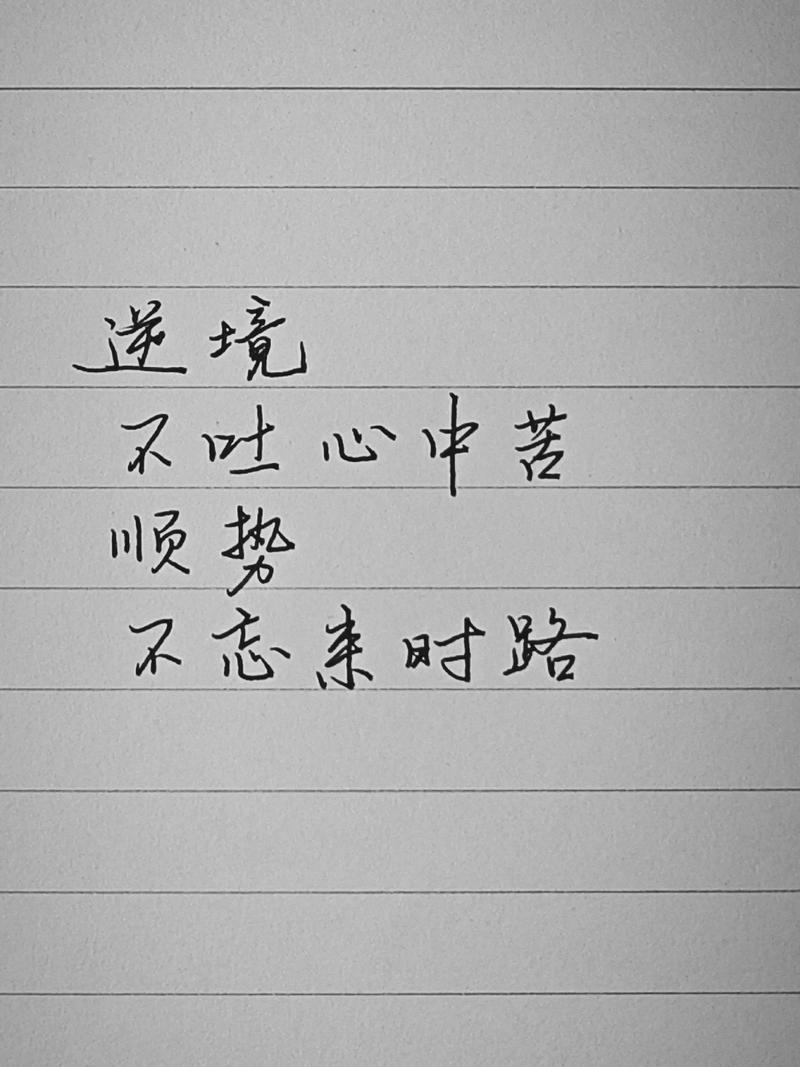 逆境
不吐心中苦
顺势
不忘来时路